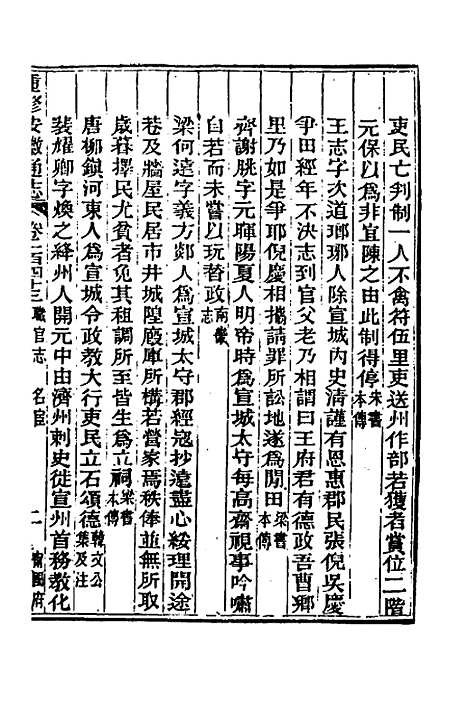 吏民亡叛制一人不禽符伍里吏送州作部若獲者賞位二階
元保以爲非宜陳之由此制得停宋書本傳
王志字次道瑯琊人除宣城內史清謹有恩惠郡民張倪吳慶
爭田經年不決志到官父老乃相謂曰王府君有德政吾曹鄉
里乃如是爭耶倪慶相攜請罪所訟地遂爲閒田梁書本傳
齊謝朓字元暉陽夏人明帝時爲宣城太守每高齋視事吟嘯
自若而未嘗以玩替政南畿志
梁何遠字義方郯人爲宣城太守郡經寇抄遠盡心綏理開途
巷及牆屋民居市井城隍廄庫所構若營家焉秩俸並無所取
歲暮擇民尤貧者免其租調所至皆生爲立祠梁書本傳
唐柳鎮河東人爲宣城令政教大行吏民立石頌德韓文公集及注
裴耀卿字煥之絳州人開元中由濟州刺史徙宣州首務教化
重修安徽通志 卷一百四十三 職官志 名宦 二 甯國府